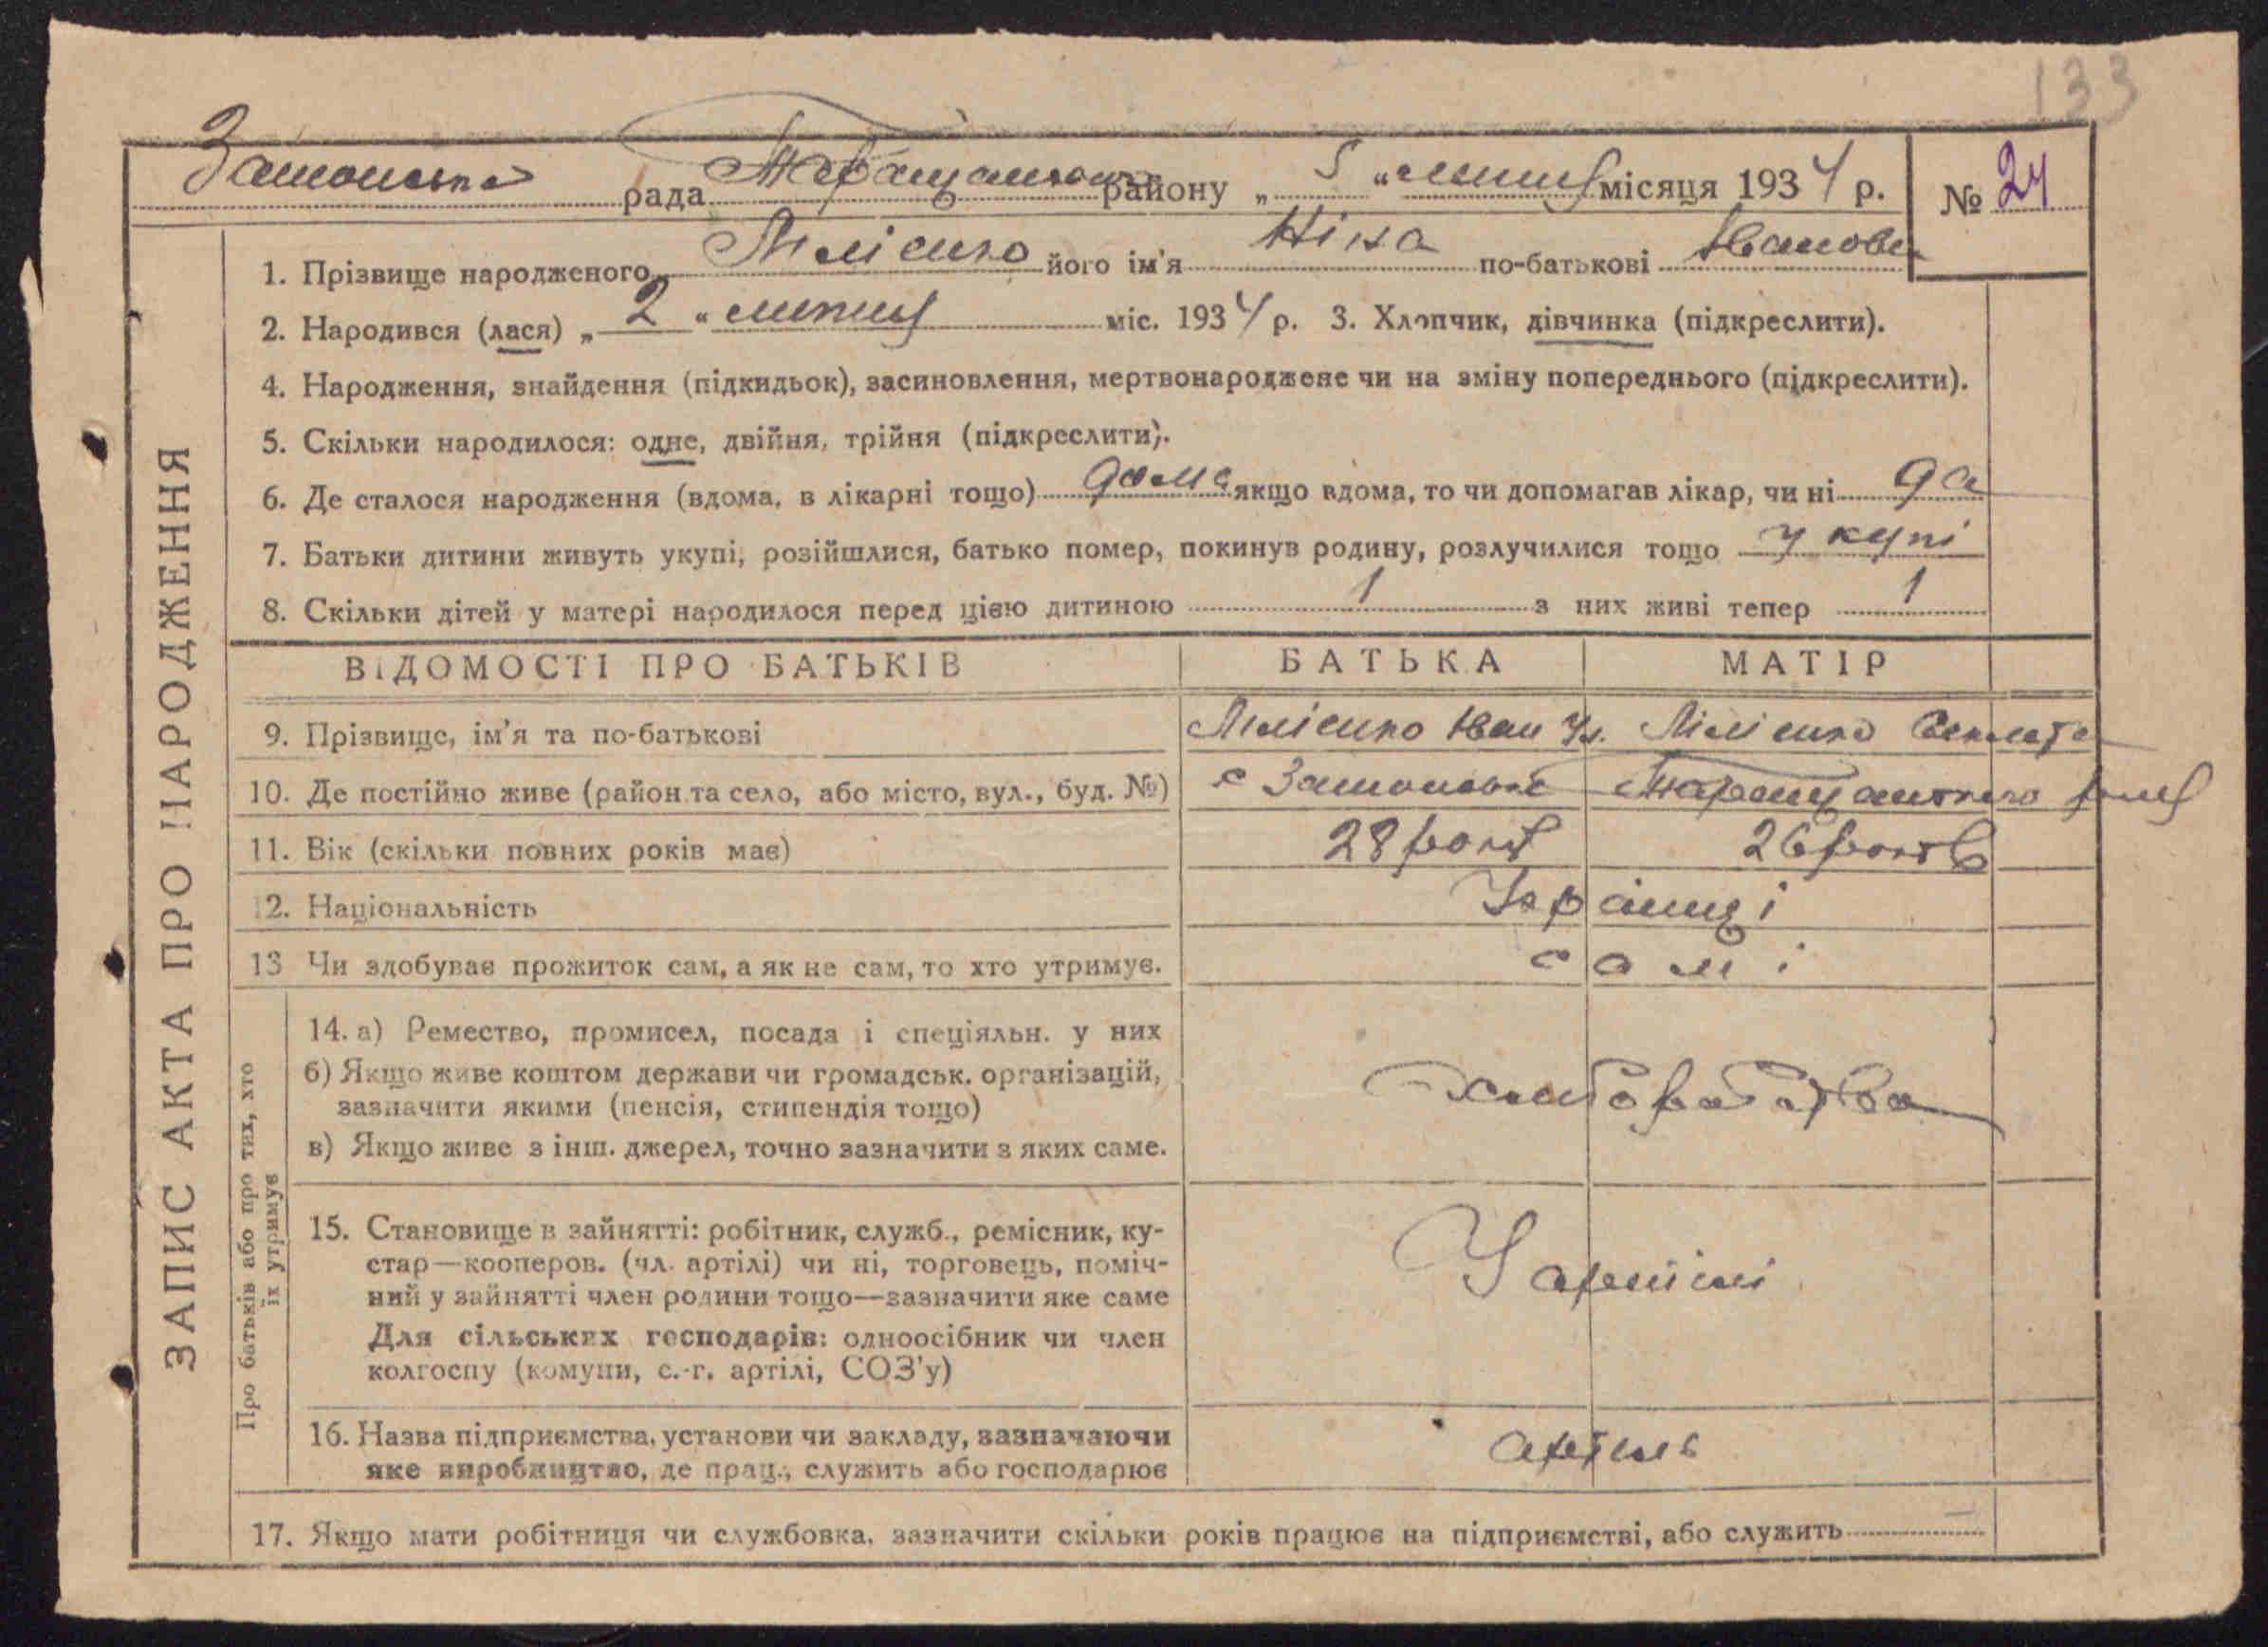 133
рада району „ 5 “ липня місяця 1934 р. № 24
ЗАПИС АКТА ПРО НАРОДЖЕННЯ
1. Прізвище народженого його ім'я Ніна по-батькові Івановн
2. Народився (лася) „ 2 “ липня міс. 1934 р. 3. Хлопчик, дівчинка (підкреслити).
4. Народження, знайдення (підкидьок), засиновлення, мертвонароджене чи на зміну попереднього (підкреслити).
5. Скільки народилося: одне, двійня, трійня (підкреслити).
6. Де сталося народження (вдома, в лікарні тощо) дома якщо вдома, то чи допомагав лікар, чи ні да
7. Батьки дитини живуть укупі, розійшлися, батько помер, покинув родину, розлучилися тощо у купі
8. Скільки дітей у матері народилося перед цією дитиною 1 з них живі тепер 1
ВІДОМОСТІ ПРО БАТЬКІВ БАТЬКА МАТІР
9. Прізвище, ім'я та по-батькові Іван
10. Де постійно живе (район та село, або місто, вул., буд. №) с
11. Вік (скільки повних років має) 28 років 26 років
12. Національність Українці
13 Чи здобуває прожиток сам, а як не сам, то хто утримує. самі
Про батьків або про тих, хто
їх утримує
14. а) Ремество, промисел, посада і спеціяльн. у них
б) Якщо живе коштом держави чи громадськ. організацій,
зазначити якими (пенсія, стипендія тощо)
хлиборобства
в) Якщо живе з інш. джерел, точно зазначити з яких саме.
15. Становище в зайнятті: робітник, служб., ремісник, ку-
стар—кооперов. (чл. артілі) чи ні, торговець, поміч-
ний у зайнятті член родини тощо—зазначити яке саме
У артілі
Для сільських господарів: одноосібник чи член
колгоспу (комуни, с.-г. артілі, СОЗ'у)
16. Назва підприємства, установи чи закладу, зазначаючи
яке виробництво, де прац., служить або господарює
артиль
17. Якщо мати робітниця чи службовка, зазначити скільки років працює на підприємстві, або служить —